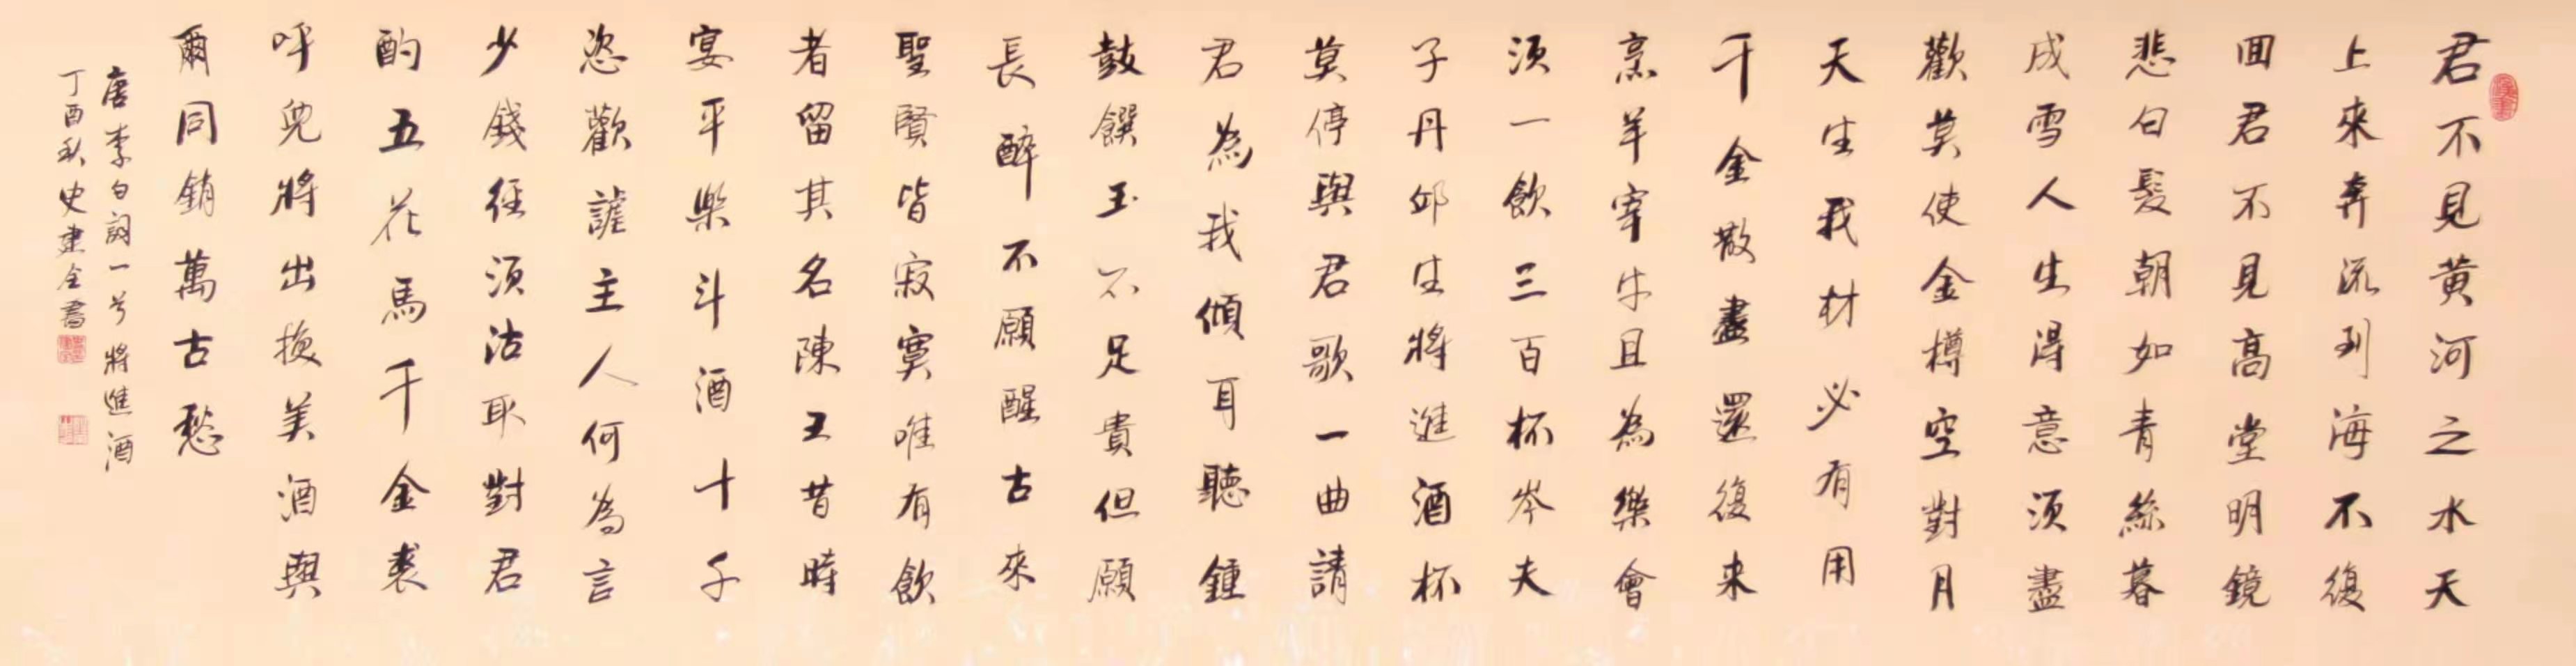 君不見黃河之水天
上來奔流到海不復
囬君不見高堂明鏡
悲白髮朝如青絲暮
成雪人生得意須盡
歡莫使金樽空對月
天生我材必有用
千金散盡還復来
烹羊宰牛且為樂會
須一飲三百杯岑夫
子丹邱生將進酒杯
莫停與君歌一曲請
君為我傾耳聽鍾
鼓饌玉不足貴但願
長醉不願醒古來
聖賢皆寂寞唯有飲
者留其名陳王昔時
宴平樂斗酒十千
恣歡謔主人何為言
少錢徑須沽取對君
酌五花馬千金裘
呼兒將出換美酒與
爾同銷萬古愁
唐李白詞一首將進酒
丁酉秋史建全書